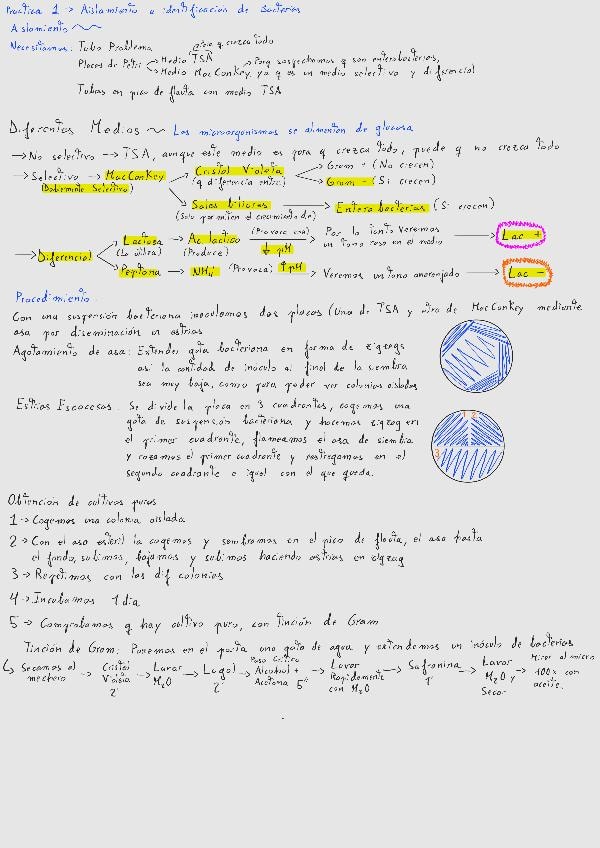 Practica 1 → Aislamiento e identificación de Bacterias
Aislamiento
Necesitamos: Tubo Problema
Placas de Petri
Medio TSA para q crezca todo
Medio MacConkey, Porq sospechamos q son enterobacterias, ya q es un medio selectivo y diferencial
Tubos en pico de flauta con medio TSA
Diferentes Medios ~ Los microorganismos se alimentan de glucosa
→ No selectivo → TSA, aunque este medio es para q crezca todo, puede q no crezca todo
→ Selectivo → MacConkey → Cristal Violeta → Gram + (No crecen)
(Doblemente Selectivo) (q diferencia entre) → Gram - (Si crecen)
Sales biliares → Enterobacterias (Si crecen)
(Solo permiten el crecimiento de)
→ Diferencial → Lactosa → Ac lactico (Provoca una) ↓ pH → Por lo tanto Veremos un tono rosa en el medio → Lac +
(Produce)
Peptona → NH4 (Provoca) ↑ pH → Veremos un tono anaranjado → Lac -
Procedimiento:
Con una suspensión bacteriana inoculamos dos placas (Una de TSA y otra de MacConkey mediante
asa por diseminación en estrías
Agotamiento de asa: Extender gota bacteriana en forma de zigzags
asi la cantidad de inoculo al final de la siembra
sea muy baja, como para poder ver colonias aisladas
Estrias Escocesas: Se divide la placa en 3 cuadrantes, cogemos una
gota de suspensión bacteriana y hacemos zigzag en
el primer cuadrante, flameamos el asa de siembra
y rozamos el primer cuadrante y restregamos en el
segundo cuadrante e igual con el que queda.
1 2
3
Obtención de cultivos puros
1 → Cogemos una colonia aislada
2 → Con el asa esteril la cogemos y sembramos en el pico de flauta, el asa hasta
el fondo, subimos, bajamos y subimos haciendo estrias en zigzag
3 → Repetimos con las dif colonias
4 → Incubamos 1 dia
5 → Comprobamos q hay cultivo puro, con tinción de Gram
Tinción de Gram: Ponemos en el porta una gota de agua y extendemos un inóculo de bacterias
↳ Secamos al mechero → Cristal Violeta 2' → Lavar H2O → Lugol 2' → Paso Critico Alcohol + Acetona 5" → Lavar Rapidamente con H2O → Safranina 1' → Lavar H2O y Secar → Mirar al micro 100x con aceite.